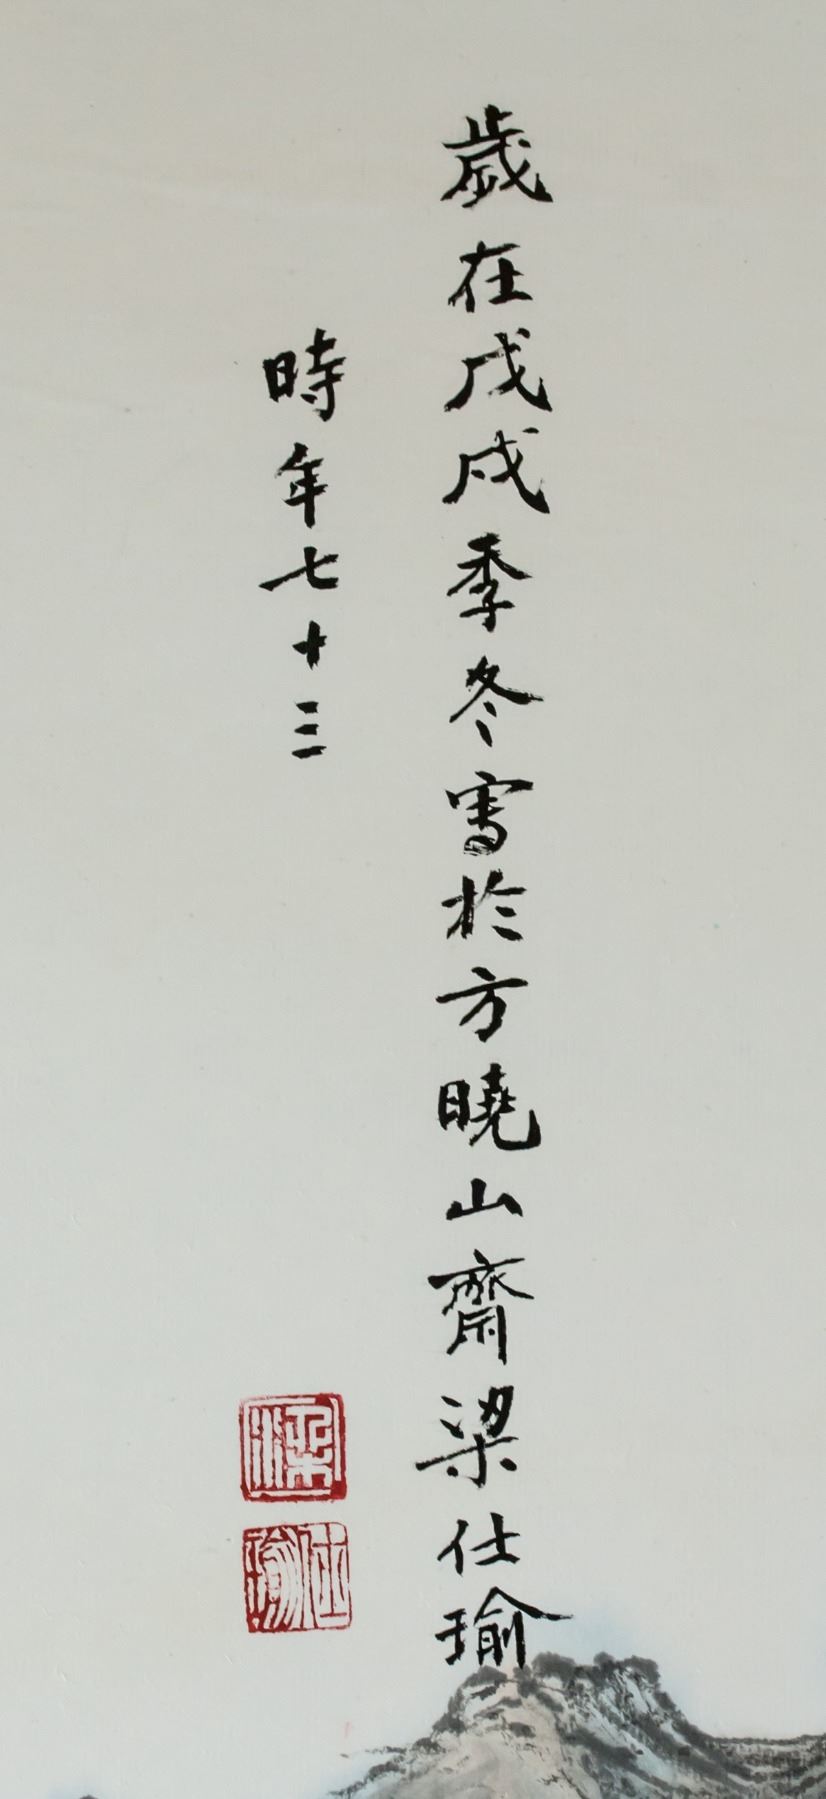 歲在戊戌季冬寫於方曉山齋梁仕瑜
時年七十三
梁
仕瑜